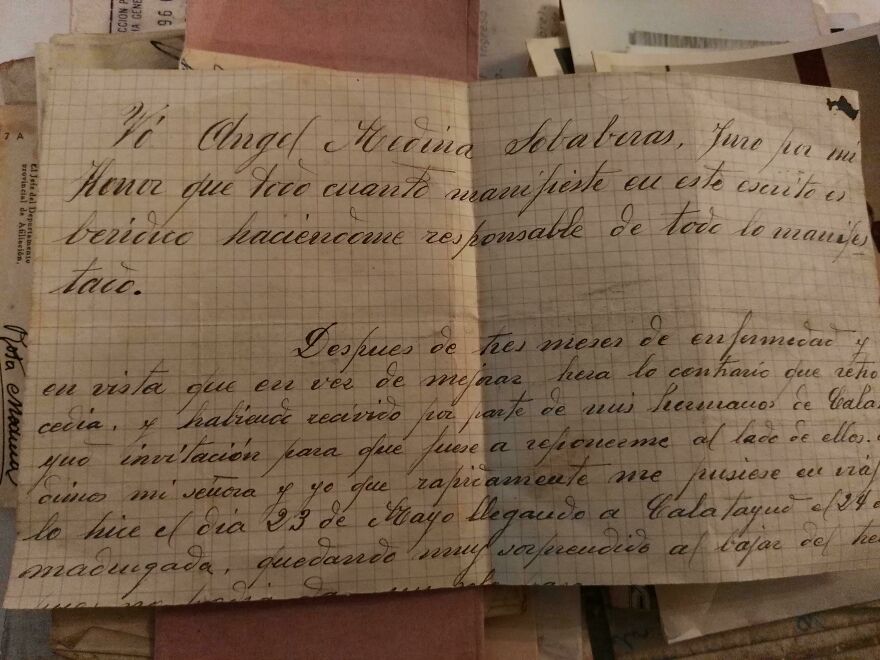 CCION P
IA GENE
96
7 A
El Jefe del Departamento
provincial de Afiliación.
Nota
Yó Angel Medina Sobaberas, Juro por mi
Honor que todo cuanto manifieste en este escrito es
beridico haciendome responsable de todo lo manifes
tado.
Despues de tres meses de enfermedad y
en vista que en vez de mejorar hera lo contrario que retro
cedia, y habiendo recivido por parte de mis hermanos de Cala
yud invitación para que fuese a reponerme al lado de ellos.
dimos mi señora y yo que rapidamente me pusiese en viaj
lo hice el dia 23 de Mayo llegando a Calatayud el 24 d
madrugada, quedando muy sorprendido al bajar del tre
que no podia dar un solo paso